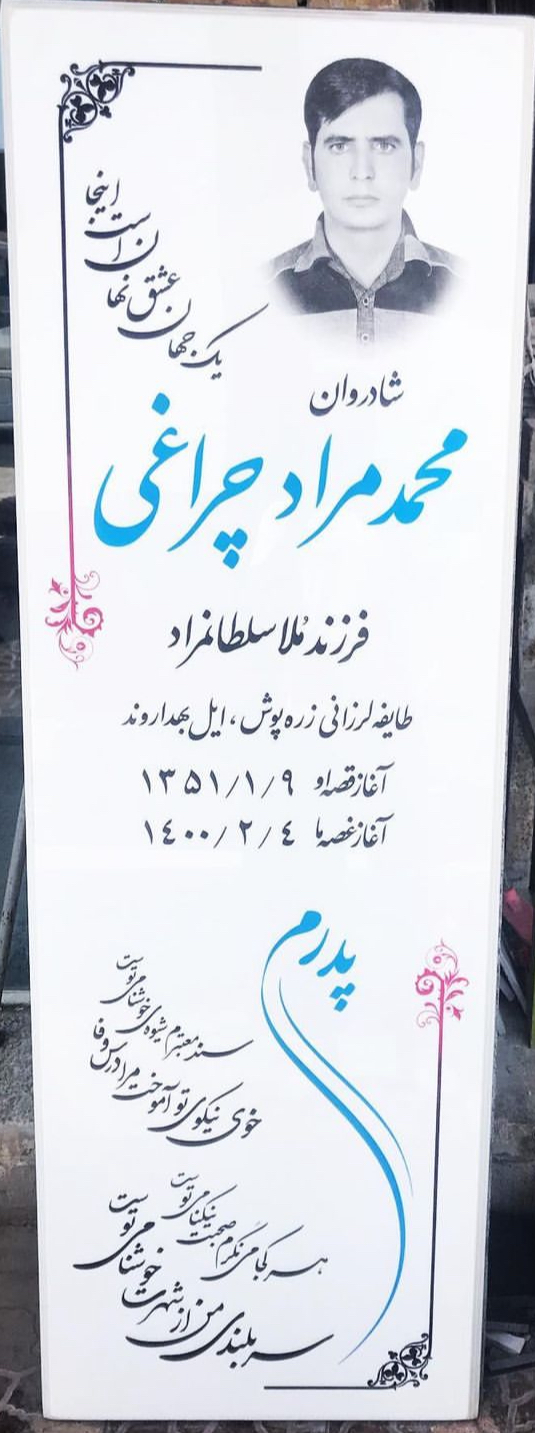 یک جهان عشق نهان است اینجا
شادروان
محمدمراد چراغی
فرزند مُلا سلطانمراد
طایفه لرزانی زره پوش، ایل بهداروند
آغاز قصه او ۱۳۵۱/۱/۹
آغاز غصه ما ۱۴۰۰/۲/۴
پدرم
سند معتبرم شیوه‌ی خوشنامی توست
خوی نیکوی تو آموخت مرا درس وفا
هر کجا می نگرم صحبت نیکنامی توست
سربلندی من از شهرت خوشنامی توست